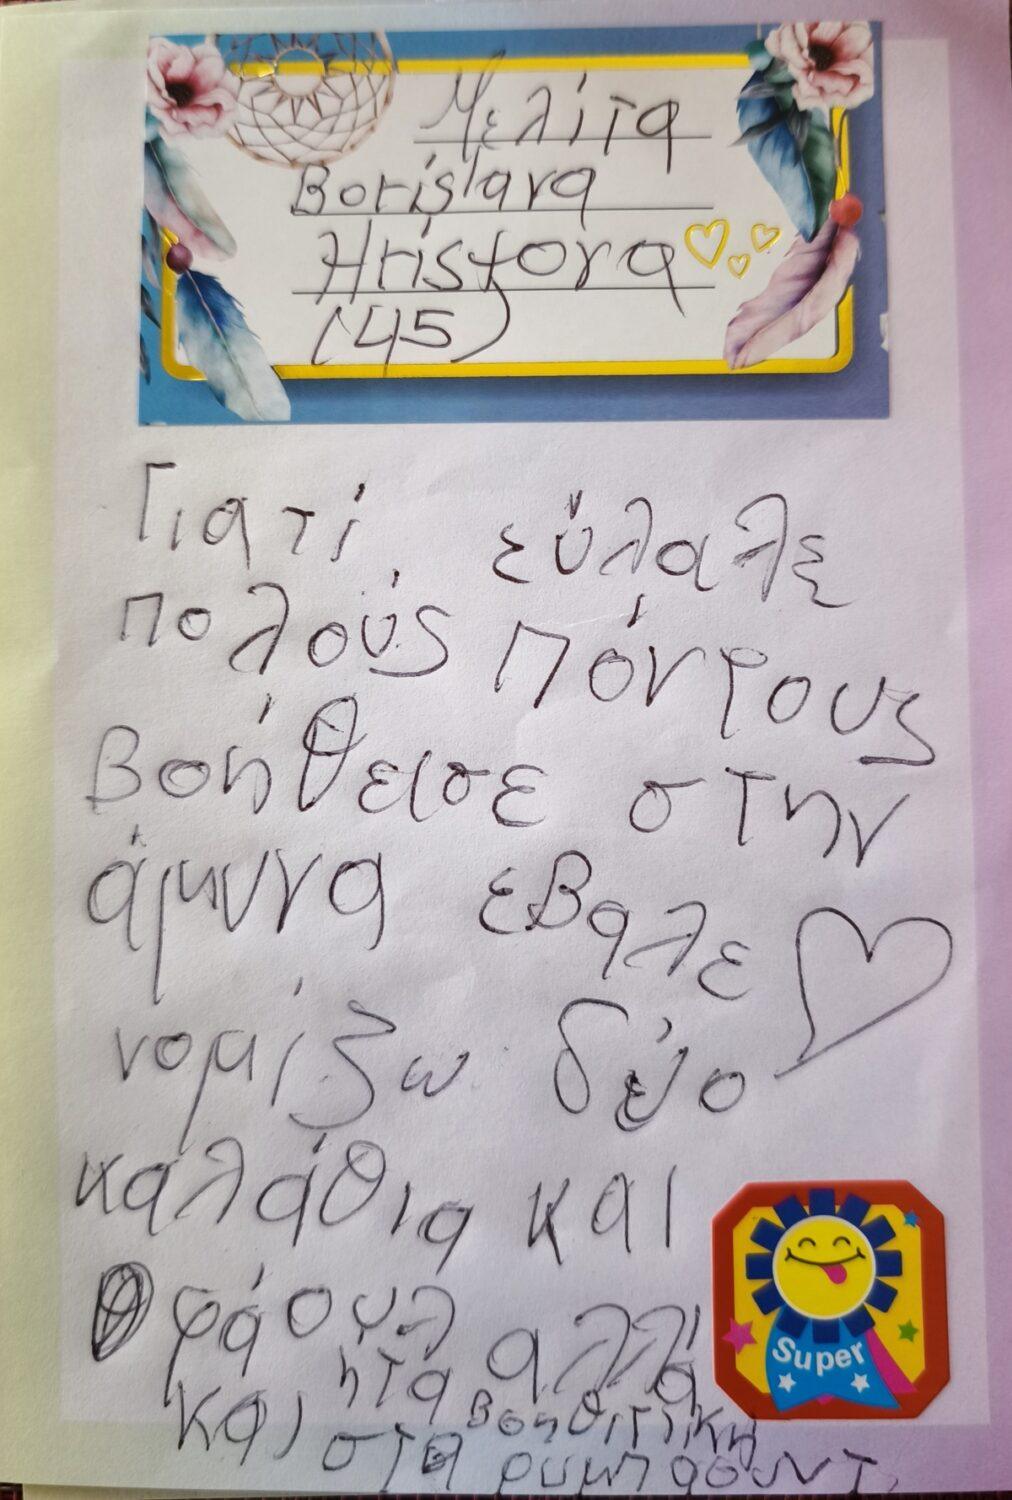 Μελίτα
Borislava
Hristova
(45)
Γιατί εύλαλε
πολούς πόντους
βοήθεισε στην
άμυνα εβαλε
νομίζω δύο
καλάθια και
φάουλ αλλά
ήτα
και βοηθιτικη
στα ρυμπαουντ
Super